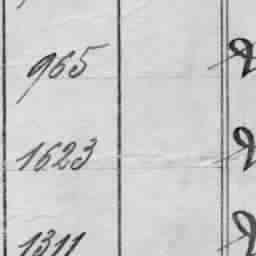 965
1623
1311